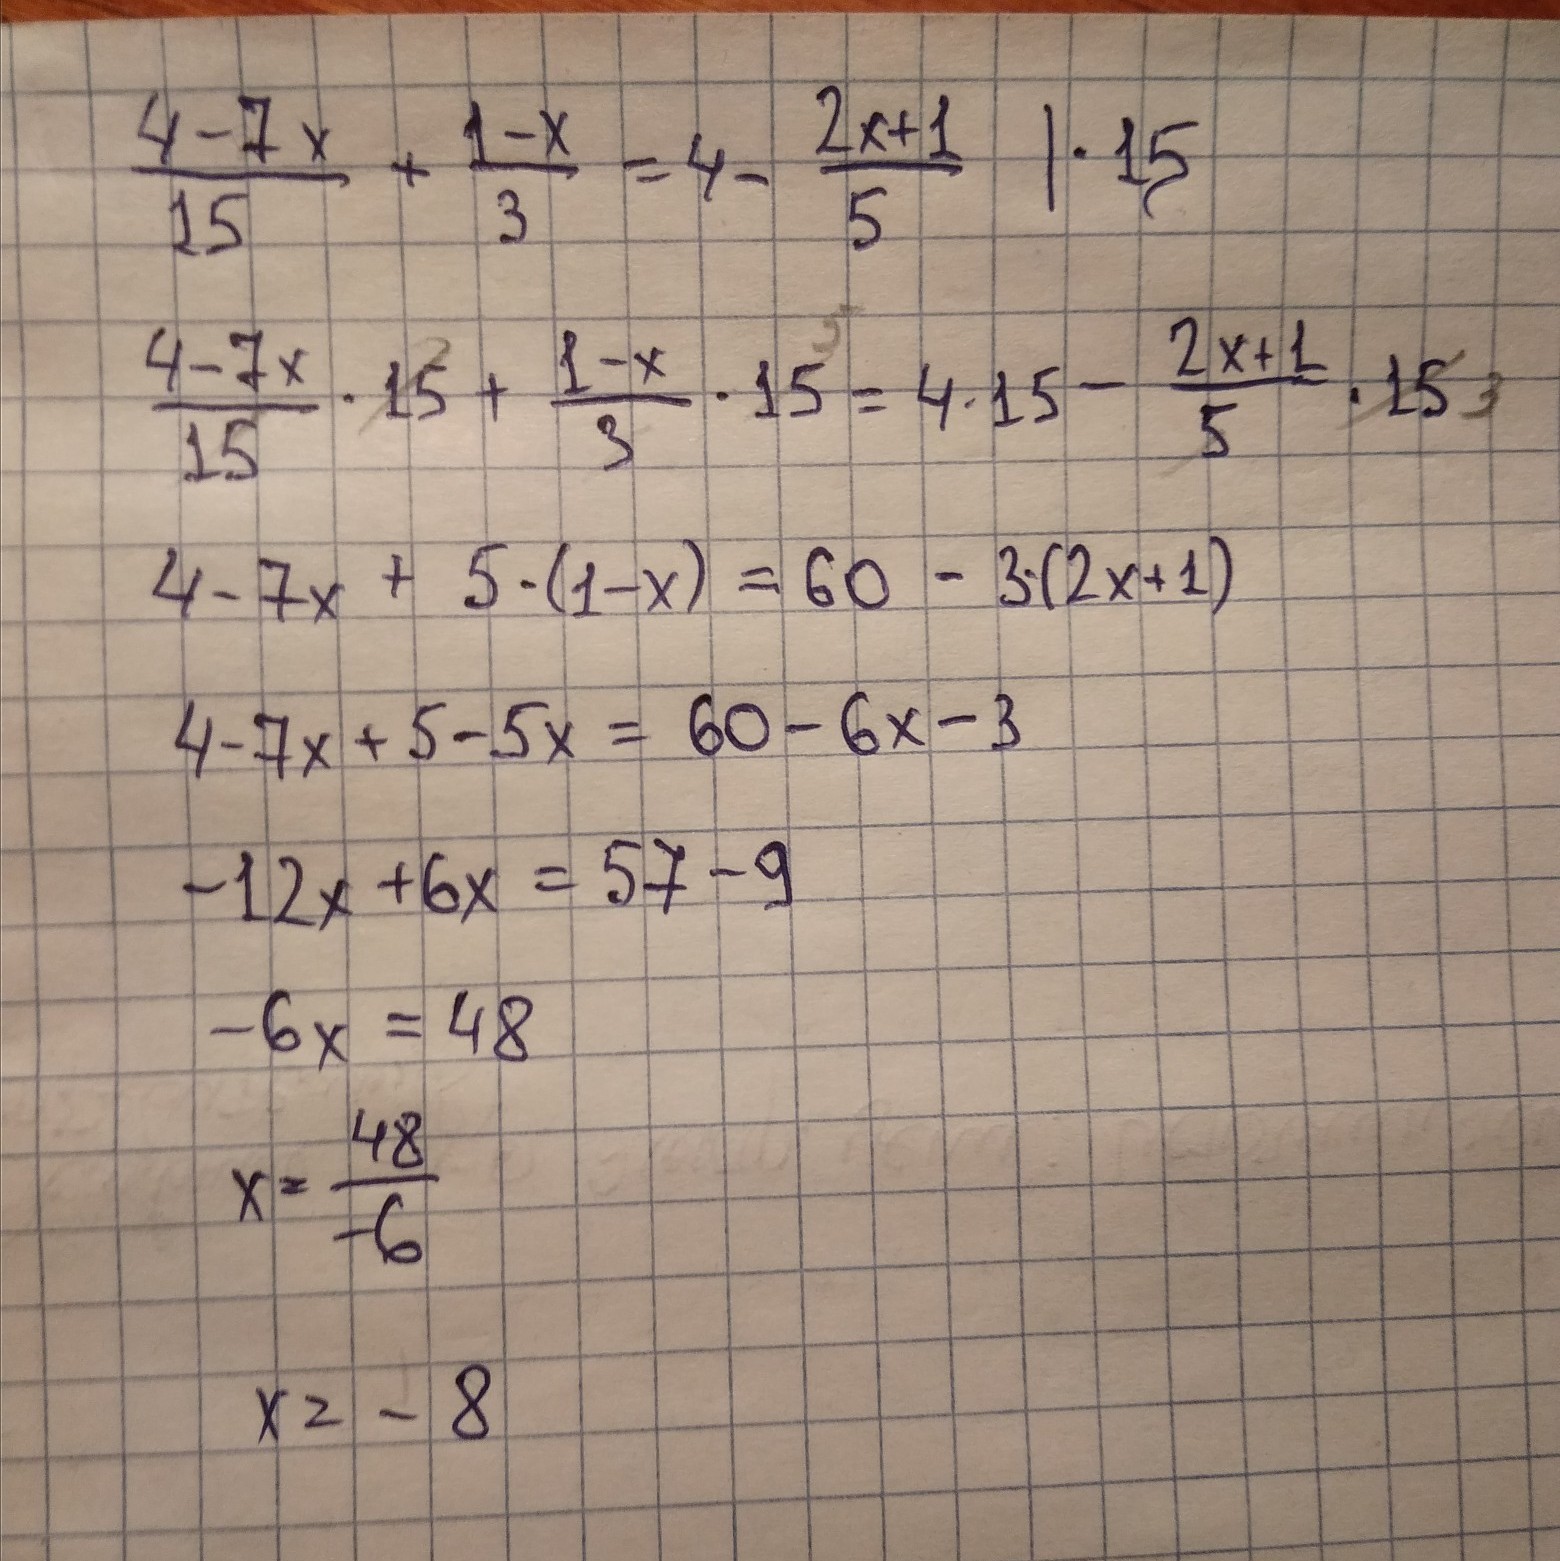 (4-7x)/15 + (1-x)/3 = 4 - (2x+1)/5 | · 15
(4-7x)/15 · 15 + (1-x)/3 · 15 5 = 4 · 15 - (2x+1)/5 · 15 3
4-7x + 5·(1-x) = 60 - 3·(2x+1)
4-7x+5-5x = 60-6x-3
-12x+6x = 57-9
-6x = 48
x = 48/-6
x = -8